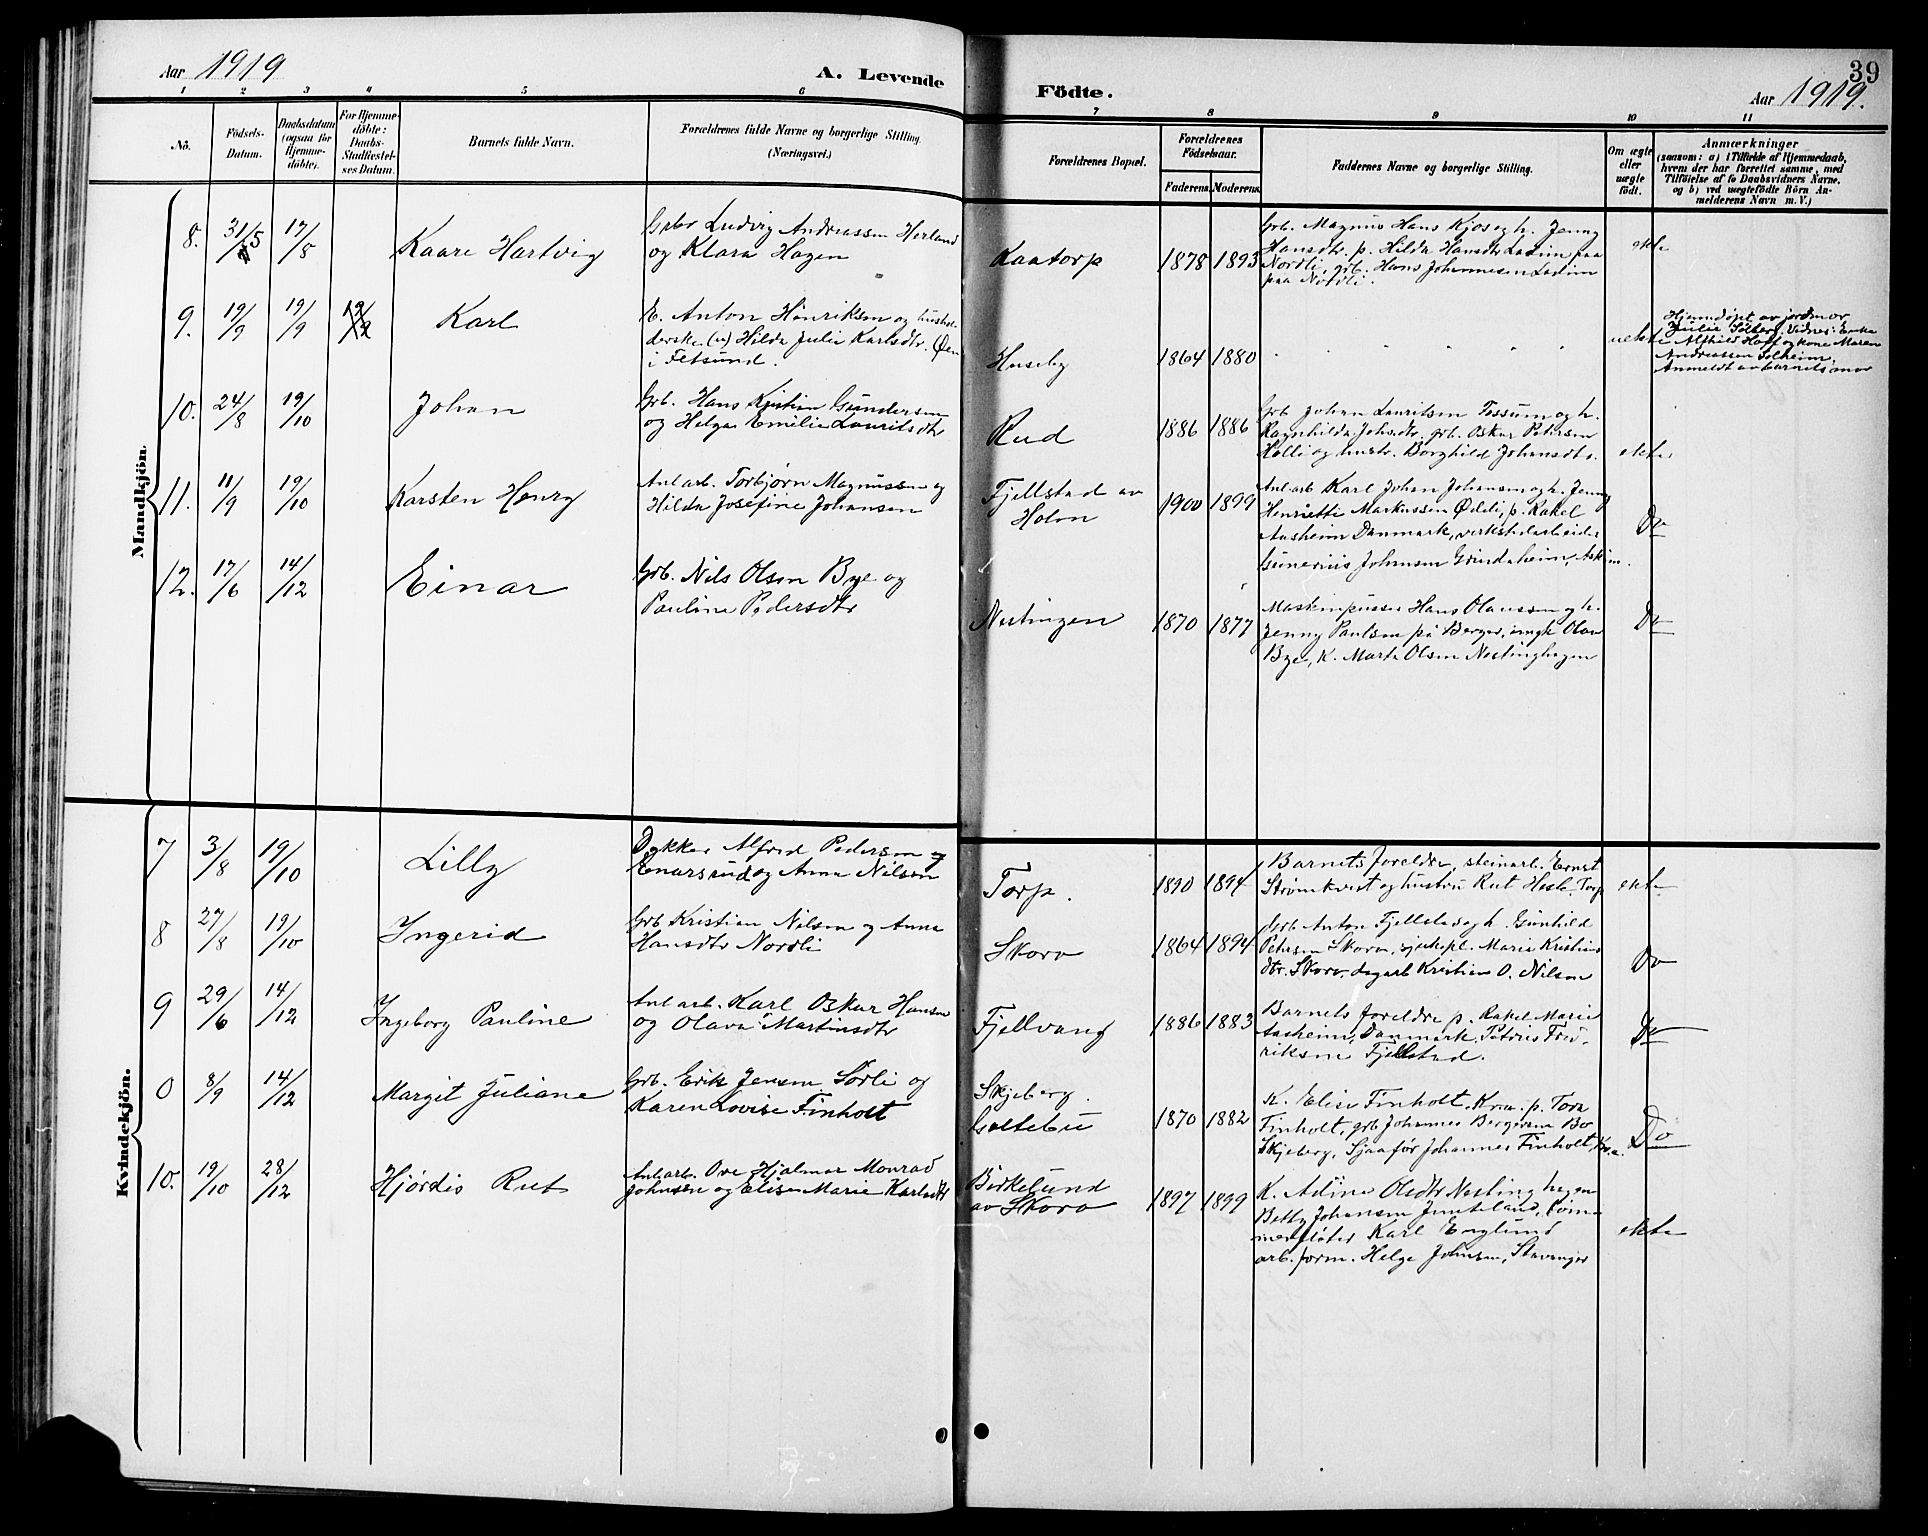 Aar 1919
A. Levende
Födte.
39
Aar 1919.
1 2 3 4 5 6 7 8 9 10 11
Nö.
Födsels-
Datum.
Daabsdatum
(ogsaa for
Hjemme-
döbte).
For Hjemme-
döbte:
Daabs-
Stadfæstel-
ses Datum.
Barnets fulde Navn.
Forældrenes fulde Navne og borgerlige Stilling
(Næringsvei.)
Forældrenes Bopæl.
Forældrenes
Födselsaar.
Faderens. Moderens.
Faddernes Navne og borgerlige Stilling.
Om ægte
eller
uægte
födt.
Anmærkninger
(saasom: a) i Tilfælde af Hjemmedaab,
hvem der har forrettet samme, med
Tilföielse af to Daabsvidners Navne,
og b) ved uægtefödte Börn An-
melderens Navn m. V.)
Mandkjön.
8. 31/5 17/8
Kaare Hartvig
Ludvig Andreassen Herland
og Klara Hagen
Kaatorp
1878 1893
Grb. Magnus Hans Kjos og h. Jenny
Hansdtr. p. Hilda Hansdtr Ladim paa
Nordli, grb. Hans Johannesen Ladim
paa Nordli.
ekte
9. 19/9 19/9
Karl
E. Anton Henriksen og hushol-
derske (u) Hilda Julie Karlsdtr. Øen
i Fetsund.
Huseby
1864 1880
" " " " "
uekte
Hjemdøpt av jordmor
Julie Solberg. Vidner: Enke
Alfhild Hoff og kone Maren
Andreassen Solheim.
Anmeldt av barnets mor
10. 24/8 19/10
Johan
Grb. Hans Kristian Gundersen
og Helga Emilie Lauritsdtr
Rud
1886 1886
Grb Johan Lauritsen Fossum og h.
Ragnhilda Johsdtr, grb. Oskar Petersen
Kolli og hustr. Borghild Johansdtr.
ekte
11. 11/9 19/10
Karsten Henry
Anl arb. Torbjørn Magnussen og
Hilda Josefine Johansen
Fjellstad av
Holm
1900 1899
Anl arb Karl Johan Johansen og h. Jenny
Henriette Markussen Ødeli, p. Rakel
Aasheim Danmark, verkstedarbeider
Gunerius Johnsen Grindaheim, Askim.
Do
12. 17/6 14/12
Einar
Grb. Nils Olsen Bye og
Pauline Pedersdtr
Nestingen
1870 1877
Maskinpusser Hans Olaussen og h.
Jenny Paulsen på Berger, ungk Olav
Bye, K. Marta Olsen Nestinghagen
Do
Kvindekjön.
7 3/8 19/10
Lilly
Dykker Alfred Pedersen
Enarsrud og Anna Nilsen
Torp.
1890 1894
Barnets foreldre, steinarb. Ernst
Strømkvist og hustru Rut Hesle, Torp
ekte
8 27/8 19/10
Ingerid
Grb Kristian Nilsen og Anna
Hansdtr Nordli
Skoro
1864 1894
Grb Anton Fjellstad og h. Gunhild
Petersen Skoro, sykepl. Marie Kristians
dtr. Skoro, dagarb Kristian O. Nilsen
Do
9 29/6 14/12
Ingeborg Pauline
Anl arb. Karl Oskar Hansen
og Olava Martinsdtr
Fjellvang
1886 1883
Barnets foreldre p. Rakel Marie
Aasheim, Danmark. Petrus Fred-
riksen Fjellstad.
Do
0 8/9 14/12
Margit Juliane
Grb. Erik Jensen Sørli og
Karen Lovise Finholt
Skjeberg.
Goltebu
1870 1882
K. Elise Finholt, Kra. p. Tora
Finholt, grb Johannes Bergersen Bø
Skjeberg, Sjaafør Johannes Finholt, Kra.
Do
10. 19/10 28/12
Hjördis Rut
Anl arb. Ove Hjalmar Monrad
Johnsen og Elise Marie Karlsdtr
Birkelund
av Skoro
1897 1899
K. Adine Olsdtr Nestinghagen
Betty Johansen Juuteland, tøm-
merfløter Karl Englund
arb. form. Helge Johnsen, Stavanger
ekte